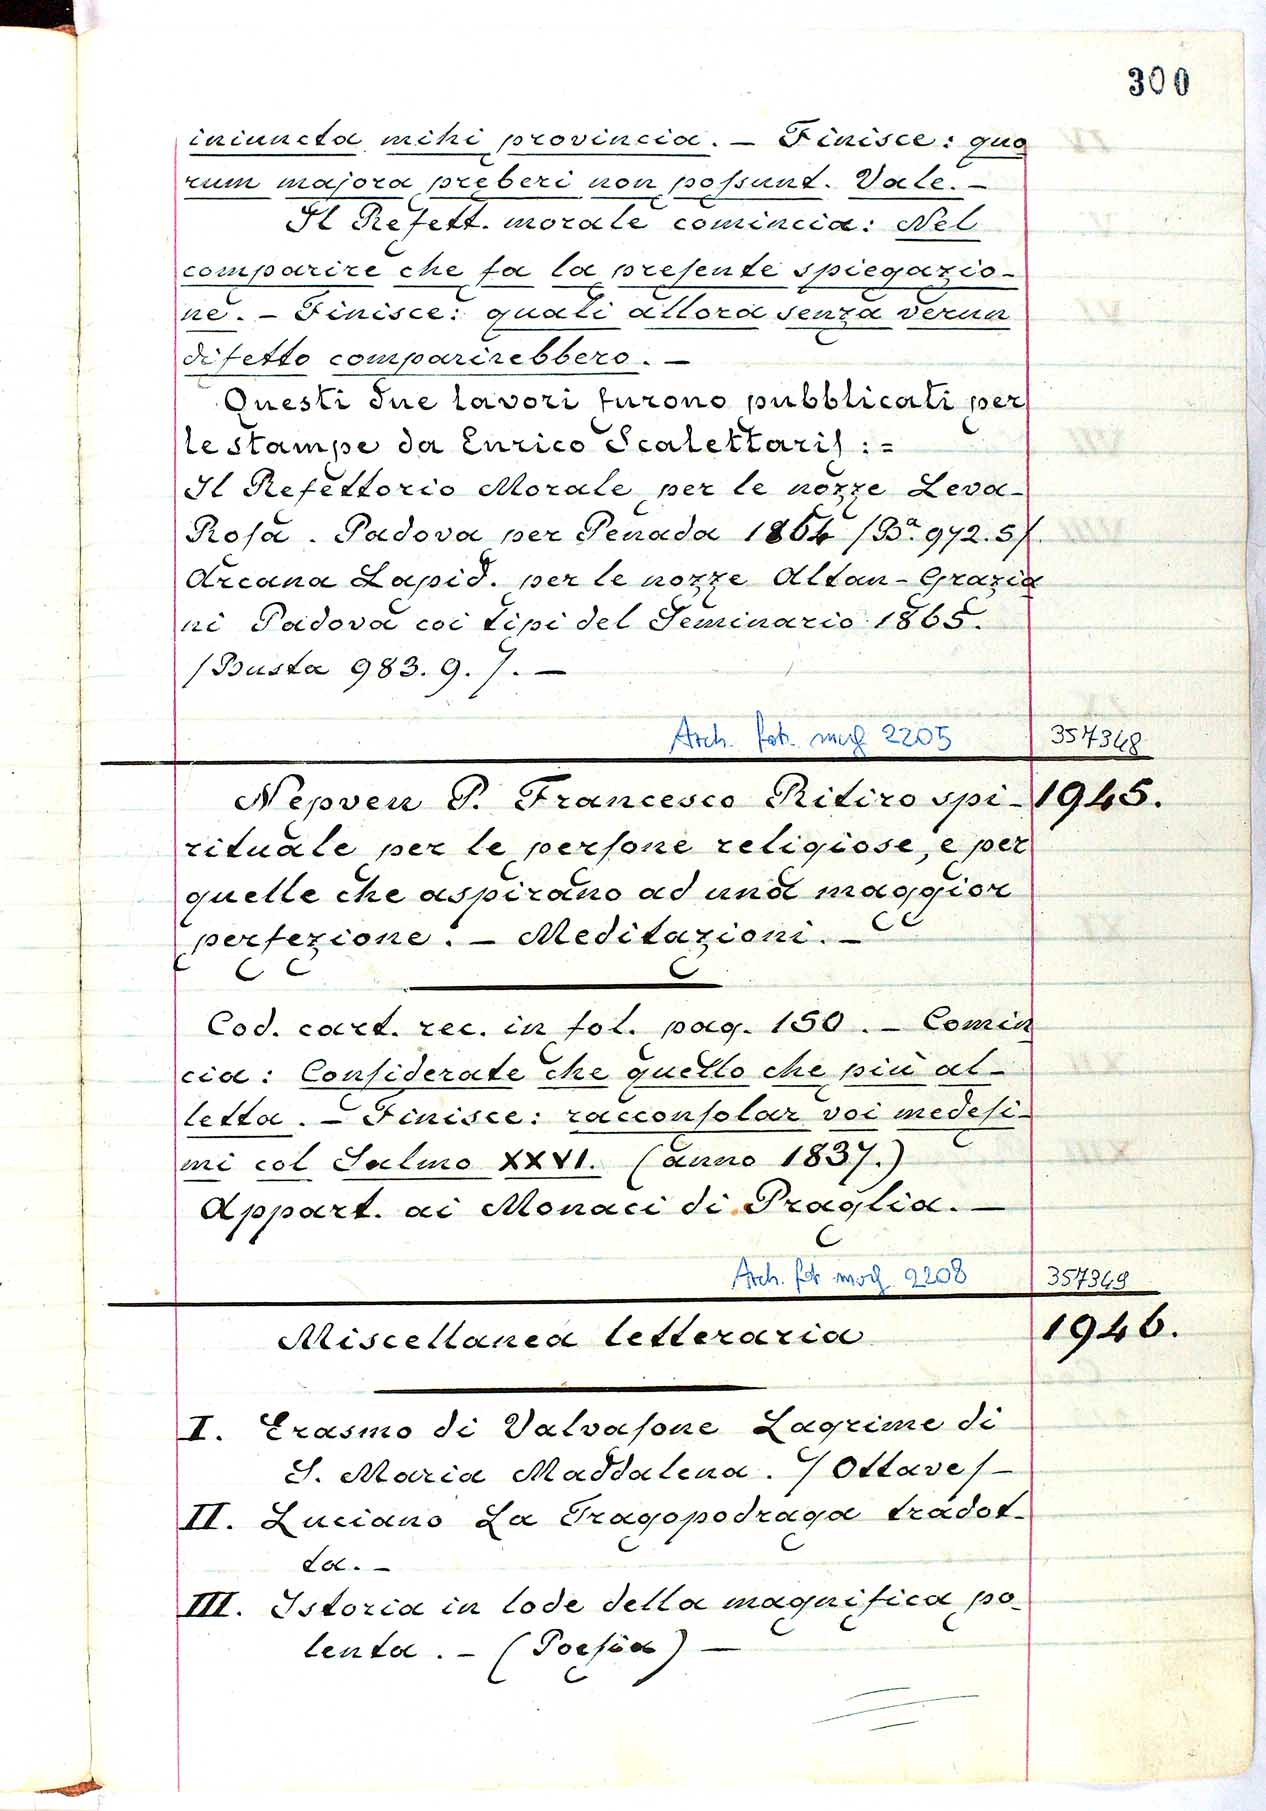 300
iniuncta mihi provincia. — Finisce: quo
rum majora preberi non poſsunt. Vale. —
Il Refett. morale comincia: Nel
comparire che fa la preſente spiegazio-
ne. — Finisce: quali allora senza verun
difetto comparirebbero. —
Questi due lavori furono pubblicati per
le stampe da Enrico Scalettaris :=
Il Refettorio Morale per le nozze Leva-
Roſa. Padova per Penada 1864 /Bª 972.5/.
Arcana Lapid. per le nozze Altan-Grazia
ni Padova coi tipi del Seminario 1865.
/Busta 983.9./. —
Arch. fot. neg 2205 357348
Nepveu P. Francesco Ritiro spi- 1945.
rituale per le perſone religiose, e per
quelle che aspirano ad una maggior
perfezione. — Meditazioni. —
Cod. cart. rec. in fol. pag. 150. — Comin
cia: Conſiderate che quello che più al-
letta. — Finisce: racconſolar voi medeſi-
mi col Salmo XXVI. (anno 1837.)
Appart. ai Monaci di Praglia. —
Arch. fot neg 2208 357349
Miscellanea letteraria 1946.
I. Erasmo di Valvaſone Lagrime di
S. Maria Maddalena. /Ottave/ —
II. Luciano La Tragopodraga tradot-
ta. —
III. Istoria in lode della magnifica po-
lenta. — (Poeſia) —